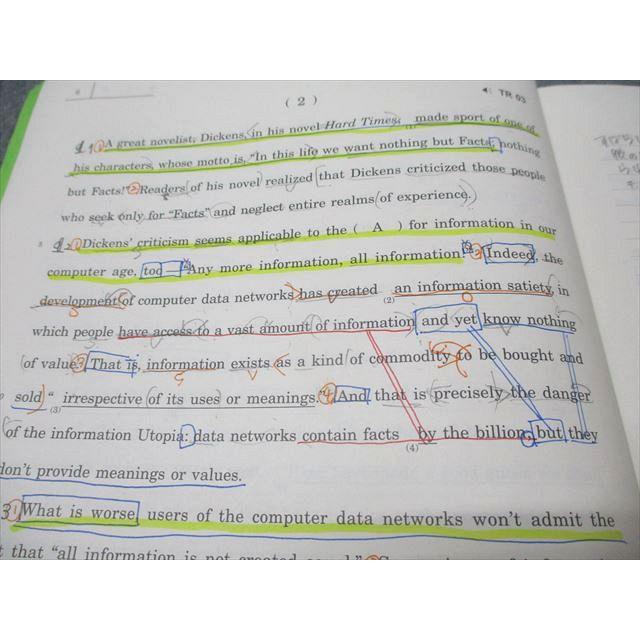 ( 2 )
TR 03
1 ① A great novelist, Dickens, in his novel Hard Times, made sport of one of
his characters, whose motto is, "In this life we want nothing but Facts, nothing
but Facts!" ② Readers of his novel realized that Dickens criticized those people
who seek only for "Facts" and neglect entire realms of experience.
2 ① Dickens' criticism seems applicable to the ( A ) for information in our
computer age, too ② Any more information, all information! ③ Indeed, the
development of computer data networks has created an information satiety, in
(2)
which people have access to a vast amount of information and yet know nothing
of value. ③ That is, information exists as a kind of commodity to be bought and
sold irrespective of its uses or meanings. ④ And that is precisely the danger
(3)
of the information Utopia: data networks contain facts by the billion, but they
(4)
don't provide meanings or values.
3 ① What is worse, users of the computer data networks won't admit the
that "all information is not created equal."